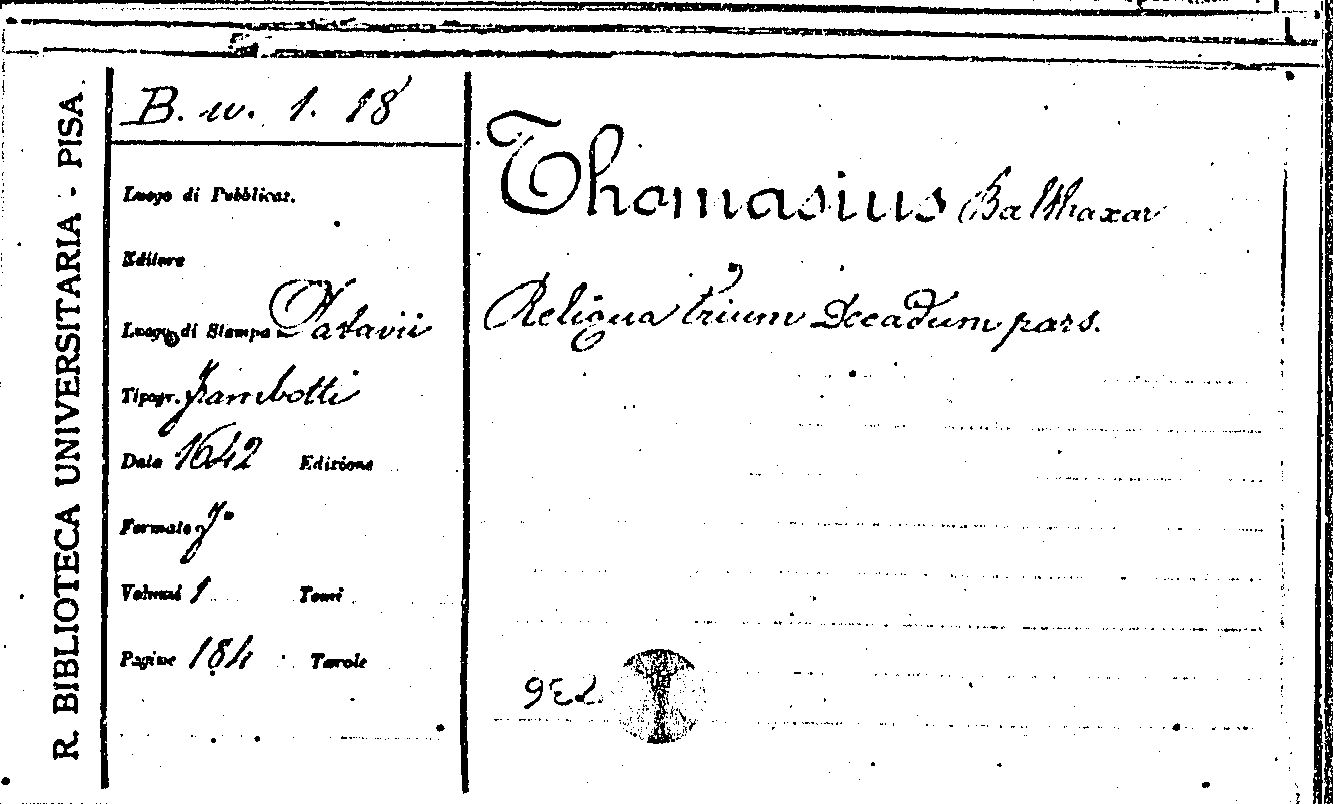 R. BIBLIOTECA UNIVERSITARIA - PISA.
B. w. 1. 18
Luogo di Pubblicaz.
Editore
Luogo di Stampa Patavii
Tipogr. Frambotti
Data 1642 Edizione
Formato
Volumi 1 Tomi
Pagine 184 Tavole
Thomasius Balthaxar
Reliqua trium Decadum pars.